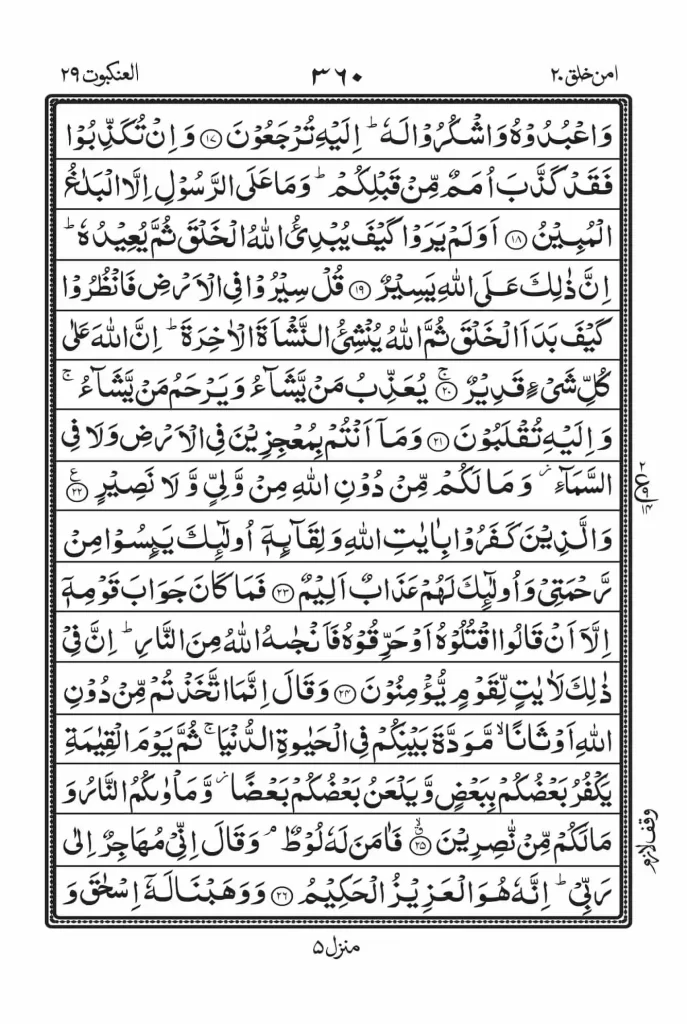 امن خلق ۲۰ ۳۶۰ العنکبوت ۲۹
وَاعْبُدُوْهُ وَاشْكُرُوْا لَهٗ ؕ اِلَيْهِ تُرْجَعُوْنَ ﴿۱۷﴾ وَاِنْ تُكَذِّبُوْا
فَقَدْ كَذَّبَ اُمَمٌ مِّنْ قَبْلِكُمْ ؕ وَمَا عَلَى الرَّسُوْلِ اِلَّا الْبَلٰغُ
الْمُبِيْنُ ﴿۱۸﴾ اَوَلَمْ يَرَوْا كَيْفَ يُبْدِئُ اللّٰهُ الْخَلْقَ ثُمَّ يُعِيْدُهٗ ؕ
اِنَّ ذٰلِكَ عَلَى اللّٰهِ يَسِيْرٌ ﴿۱۹﴾ قُلْ سِيْرُوْا فِى الْاَرْضِ فَانْظُرُوْا
كَيْفَ بَدَاَ الْخَلْقَ ثُمَّ اللّٰهُ يُنْشِئُ النَّشْاَةَ الْاٰخِرَةَ ؕ اِنَّ اللّٰهَ عَلٰى
كُلِّ شَىْءٍ قَدِيْرٌ ﴿۲۰﴾ ۚ يُعَذِّبُ مَنْ يَّشَآءُ وَيَرْحَمُ مَنْ يَّشَآءُ ۚ
وَاِلَيْهِ تُقْلَبُوْنَ ﴿۲۱﴾ وَمَاۤ اَنْتُمْ بِمُعْجِزِيْنَ فِى الْاَرْضِ وَلَا فِى
السَّمَآءِ ؗ وَمَا لَكُمْ مِّنْ دُوْنِ اللّٰهِ مِنْ وَّلِىٍّ وَّلَا نَصِيْرٍ ﴿۲۲﴾ ع
وَالَّذِيْنَ كَفَرُوْا بِاٰيٰتِ اللّٰهِ وَلِقَآئِهٖۤ اُولٰٓئِكَ يَئِسُوْا مِنْ
رَّحْمَتِىْ وَاُولٰٓئِكَ لَهُمْ عَذَابٌ اَلِيْمٌ ﴿۲۳﴾ فَمَا كَانَ جَوَابَ قَوْمِهٖۤ
اِلَّاۤ اَنْ قَالُوا اقْتُلُوْهُ اَوْ حَرِّقُوْهُ فَاَنْجٰىهُ اللّٰهُ مِنَ النَّارِ ؕ اِنَّ فِىْ
ذٰلِكَ لَاٰيٰتٍ لِّقَوْمٍ يُّؤْمِنُوْنَ ﴿۲۴﴾ وَقَالَ اِنَّمَا اتَّخَذْتُمْ مِّنْ دُوْنِ
اللّٰهِ اَوْثَانًا ۙ مَّوَدَّةَ بَيْنِكُمْ فِى الْحَيٰوةِ الدُّنْيَا ۚ ثُمَّ يَوْمَ الْقِيٰمَةِ
يَكْفُرُ بَعْضُكُمْ بِبَعْضٍ وَّيَلْعَنُ بَعْضُكُمْ بَعْضًا ؗ وَّمَاْوٰىكُمُ النَّارُ وَ
مَا لَكُمْ مِّنْ نّٰصِرِيْنَ ﴿۲۵﴾ فَاٰمَنَ لَهٗ لُوْطٌ ۘ وَقَالَ اِنِّىْ مُهَاجِرٌ اِلٰى
رَبِّىْ ؕ اِنَّهٗ هُوَ الْعَزِيْزُ الْحَكِيْمُ ﴿۲۶﴾ وَوَهَبْنَا لَهٗۤ اِسْحٰقَ وَ
وقف لازم
منزل ۵